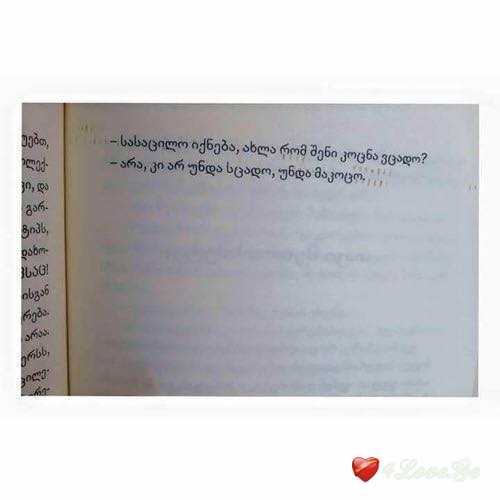 – სასაცილო იქნება, ახლა რომ შენი კოცნა ვცადო?
– არა, კი არ უნდა სცადო, უნდა მაკოცო.
უებთ,
ოლექ-
კი, და
გარ-
ტიპს,
დახო-
ვსაც!
ისგან
რება.
არაა.
ერსს,
ვილე-
ერე-
4Love.Ge